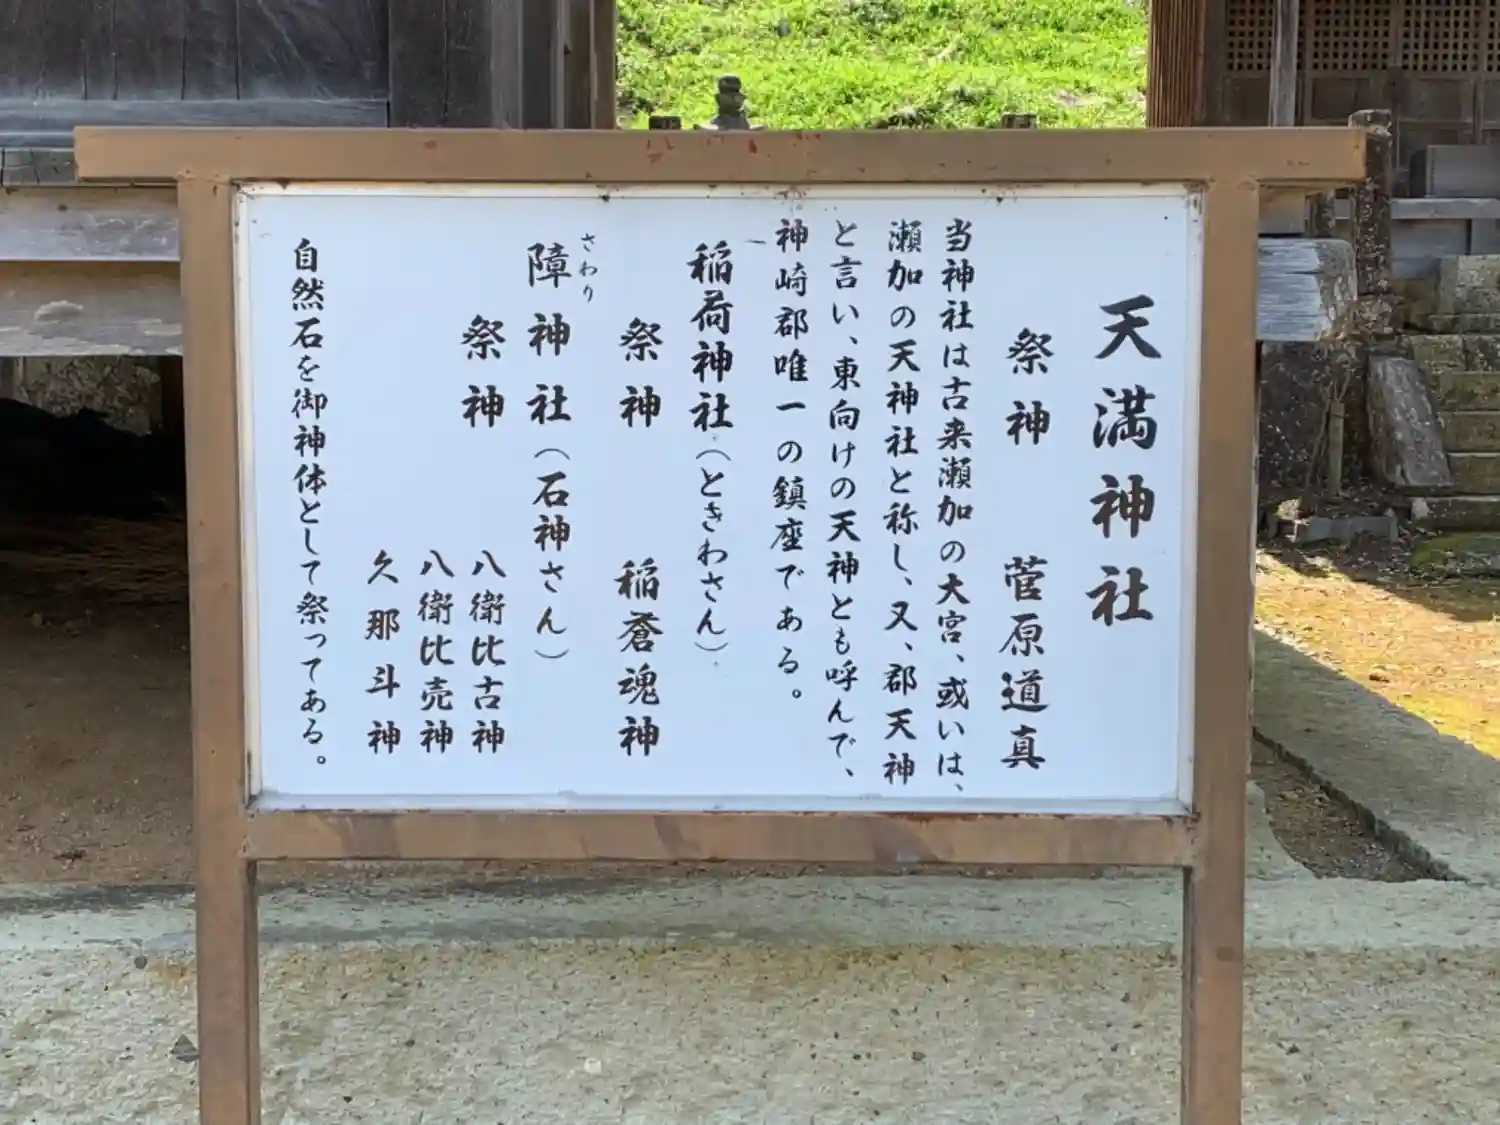 天満神社
祭神 菅原道真
当神社は古来瀬加の大宮、或いは、
瀬加の天神社と称し、又、郡天神
と言い、東向けの天神とも呼んで、
神崎郡唯一の鎮座である。
稲荷神社（ときわさん）
祭神 稲蒼魂神
さわり
障神社（石神さん）
祭神 八衢比古神
八衢比売神
久那斗神
自然石を御神体として祭ってある。